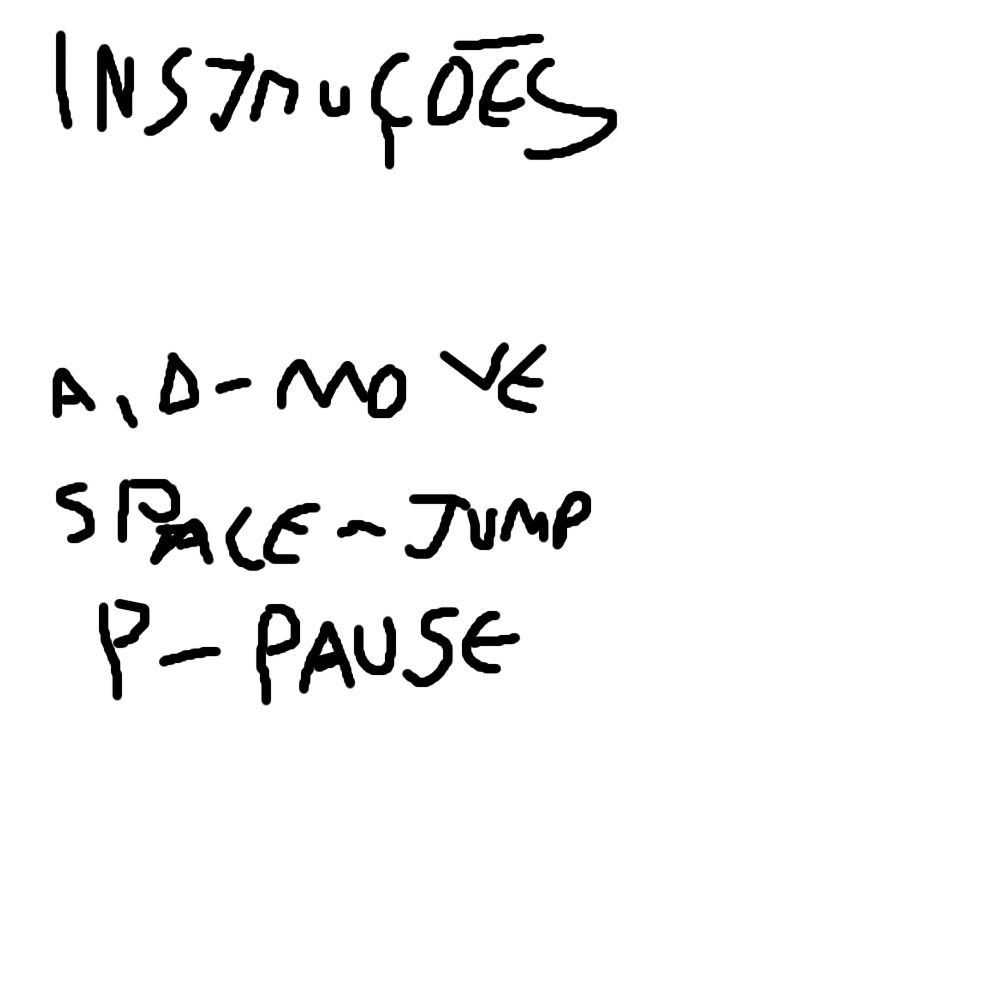 INSTRUÇÕES
A, D - MOVE
SPACE - JUMP
P - PAUSE